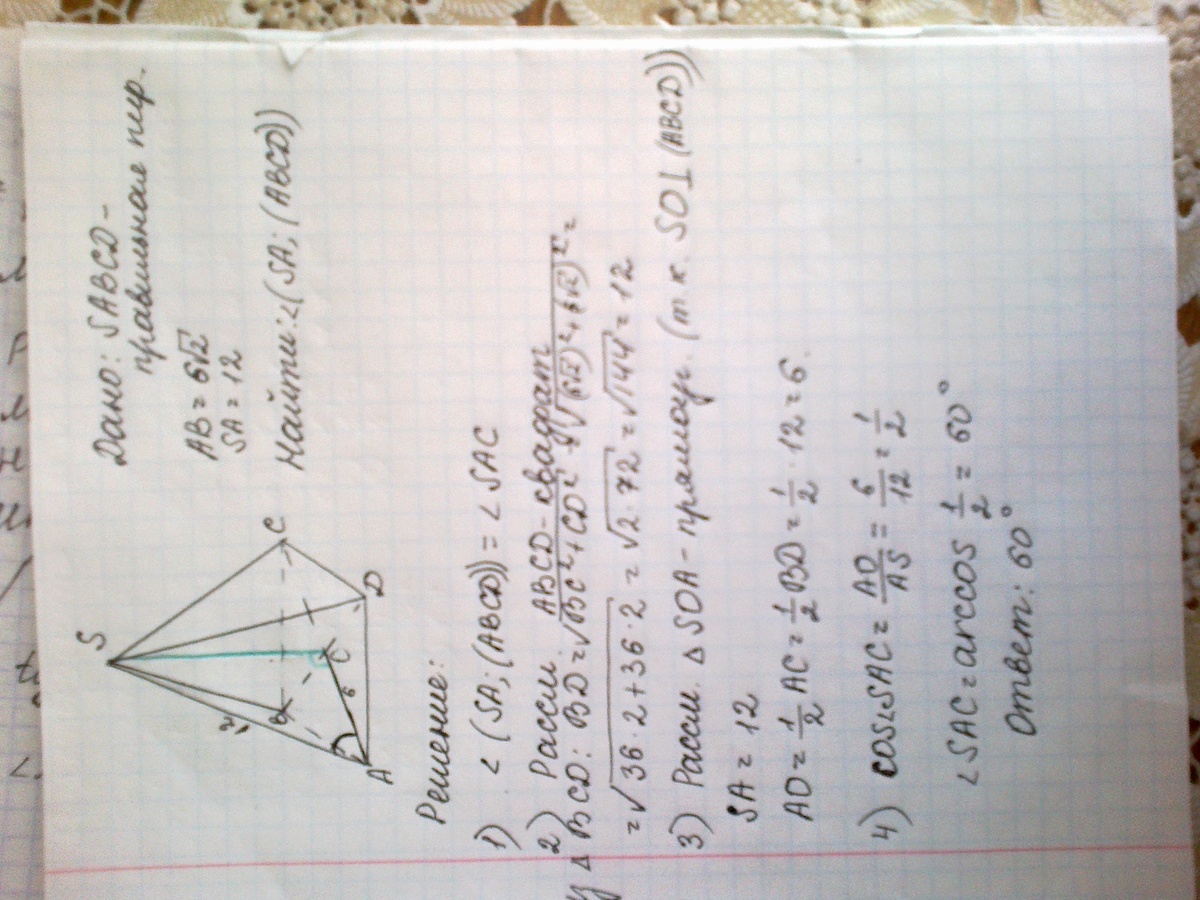 Дано: SABCD -
правильная пир.
AB = 6√2
SA = 12
Найти: ∠(SA; (ABCD))
S
C
B
12
O
6
D
A
Решение:
1) ∠(SA; (ABCD)) = ∠SAC
2) Рассм. ABCD - квадрат
Δ BCD: BD = √BC² + CD² = √(6√2)² + (6√2)² =
= √36·2 + 36·2 = √2·72 = √144 = 12
3) Рассм. Δ SOA - прямоуг. (т.к. SO⊥(ABCD))
SA = 12
AO = 1/2 AC = 1/2 BD = 1/2 · 12 = 6.
4) cos∠SAC = AO/AS = 6/12 = 1/2
∠SAC = arccos 1/2 = 60°
Ответ: 60°